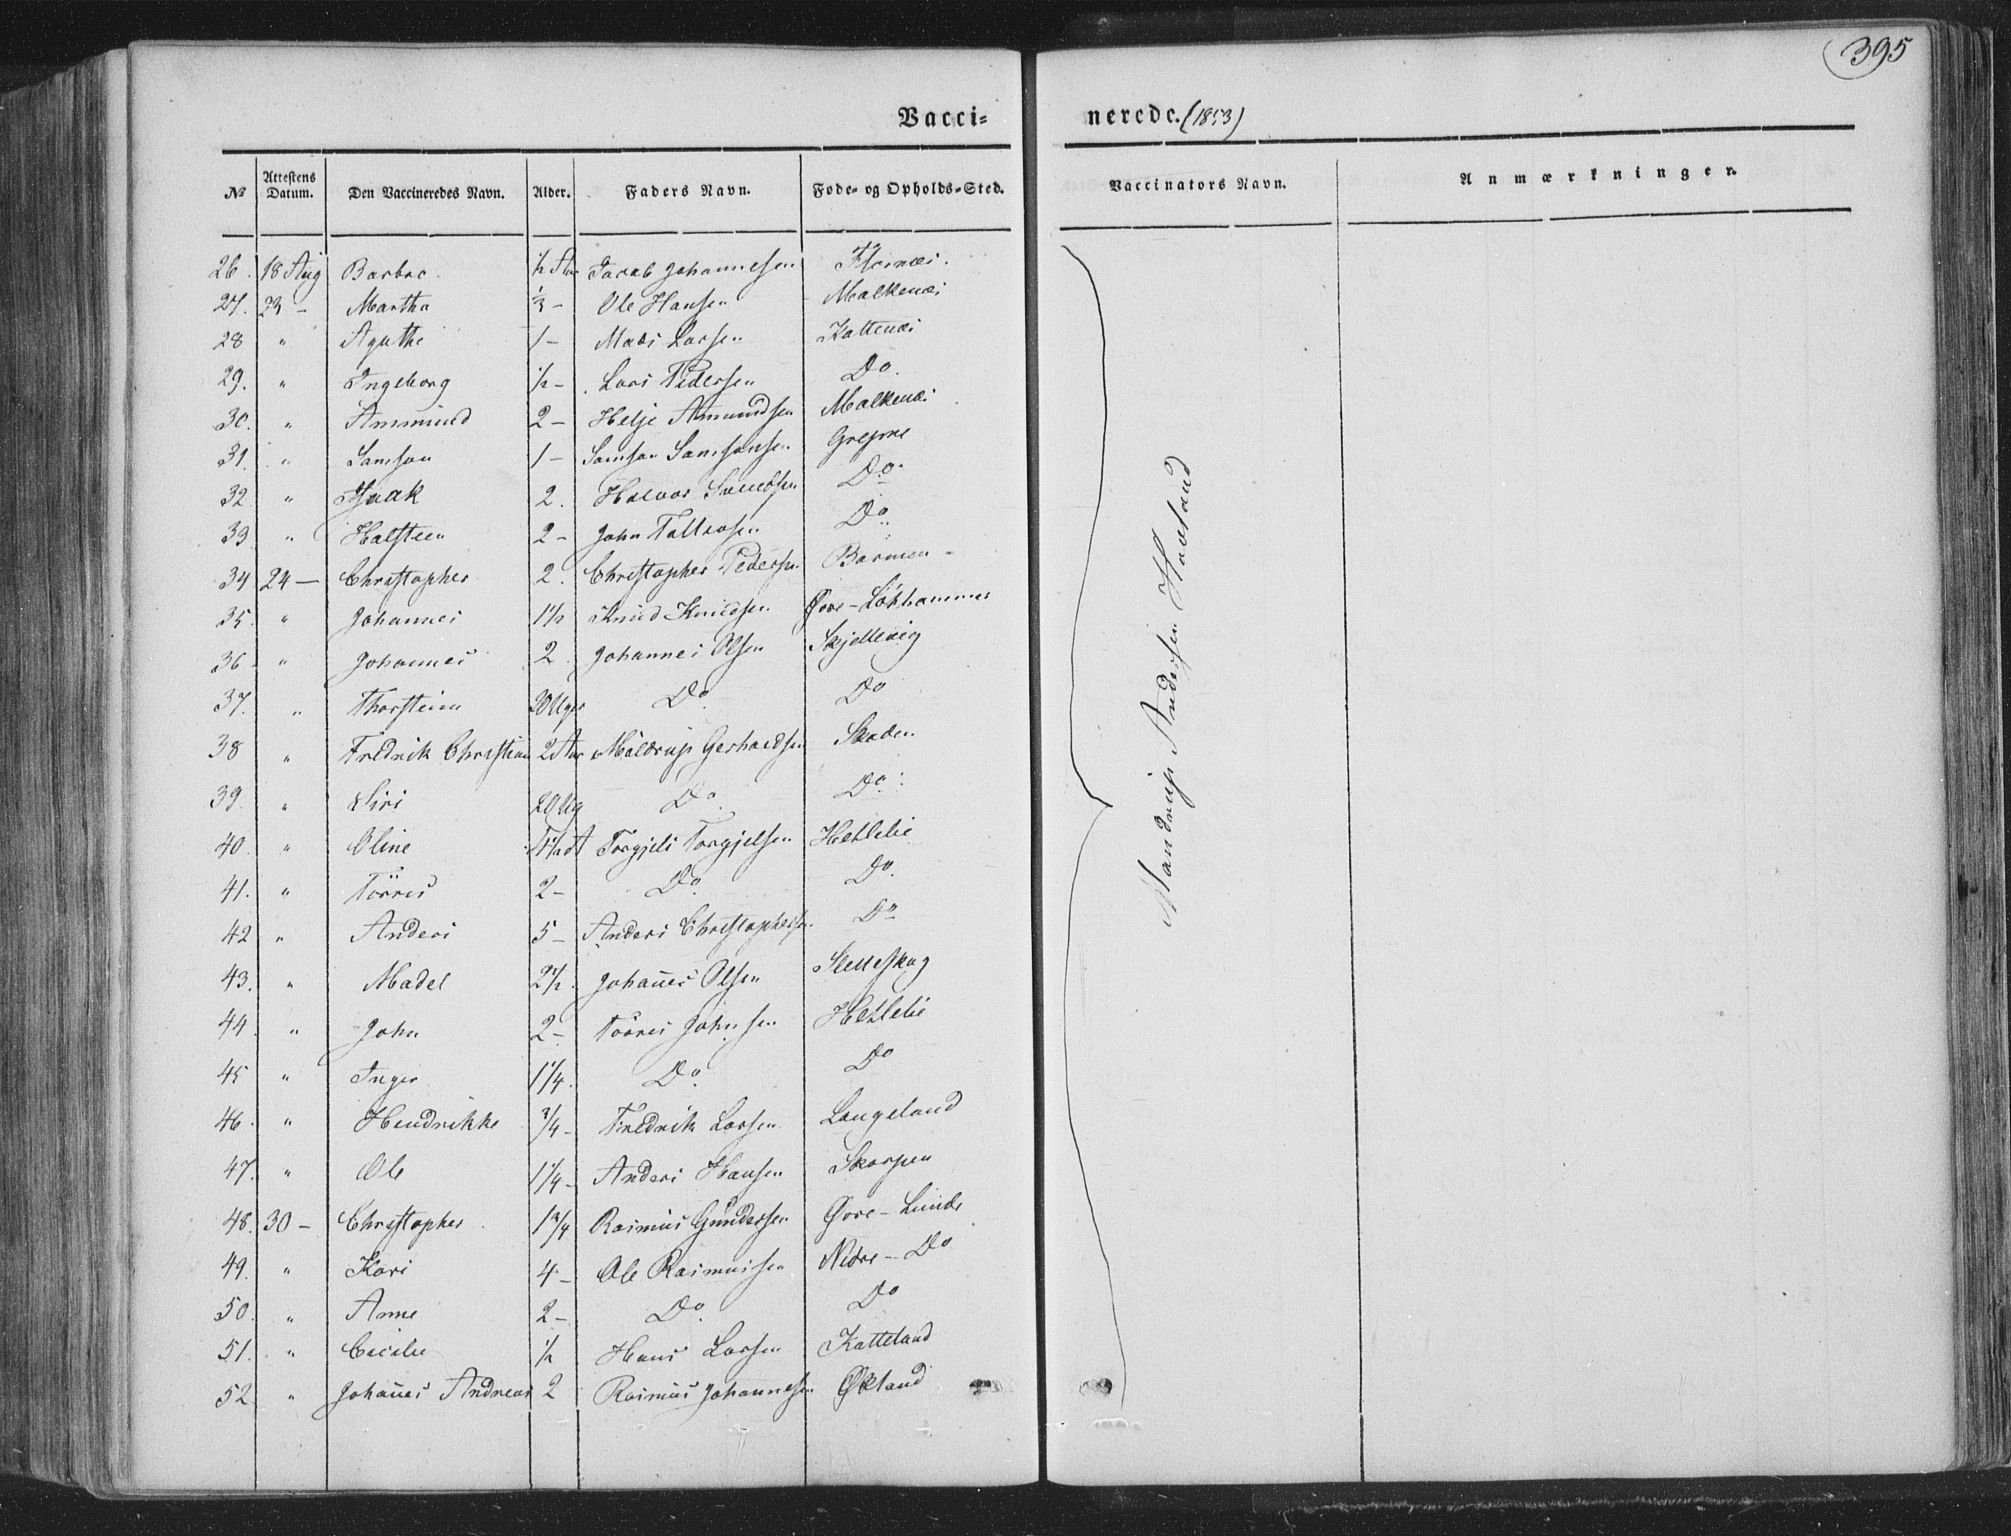 395
Vacci= nerede. (1853)
No Attestens Datum. Den Vaccineredes Navn. Alder. Faders Navn. Føde- og Opholds-Sted. Vaccinators Navn. Anmærkninger.
26. 18 Aug Barbro ½ Aar Jacob Johannesen
27. 23 - Martha ⅓ - Ole Hansen Malkenæs
28 " Agathe 1 - Mads Larsen Kattenæs
29. " Ingeborg ½ - Lars Pedersen Do.
30. " Ammund 2 - Helje Amundsen Malkenæs
31. " Samson 1 - Samson Samsonsen Grepne
32 " Isaak 2. Halvor Do.
33 " Halsteen 2 - John Do.
34 24 - Christopher 2. Christopher Pedersen Barmen
35. " Johannes 1½ Knud Knudsen Øvre - Lökhammer
36 " Johannes 2 Johannes Olsen Skjellevig
37. " Thorsteinn 20 Uger Do. Do
38 " Fredrik Christian 2 Aar Möldrup Gerhardsen Skaden
39. " Siri 20 Ug Do. Do.
40. " Oline 1½ A Torgjels Torgjelsen Hetlelie
41. " Törres 2 - Do. Do.
42 " Anders 5 - Anders Christophersen Do
43. " Madel 2½. Johan̄es Olsen Sletteskog
44. " John 2 - Törres Johnsen Hetlelie
45 " Inger 1¼. Do. Do
46. " Hendrikke ¾ - Fredrik Larsen Langeland
47. " Ole 1¼ - Anders Hansen Skorpen
48. 30 - Christopher 1¾ Rasmus Gundersen Øvre - Lunde
49. " Kari 4 - Ole Rasmussen Nedre - Do
50. " Anne 2 - Do. Do
51. " Cecilie ½ Hans Larsen Katteland
52 " Johan̄es Andreas 2 Rasmus Johannesen Økland
Mandrup Andersen Hovland